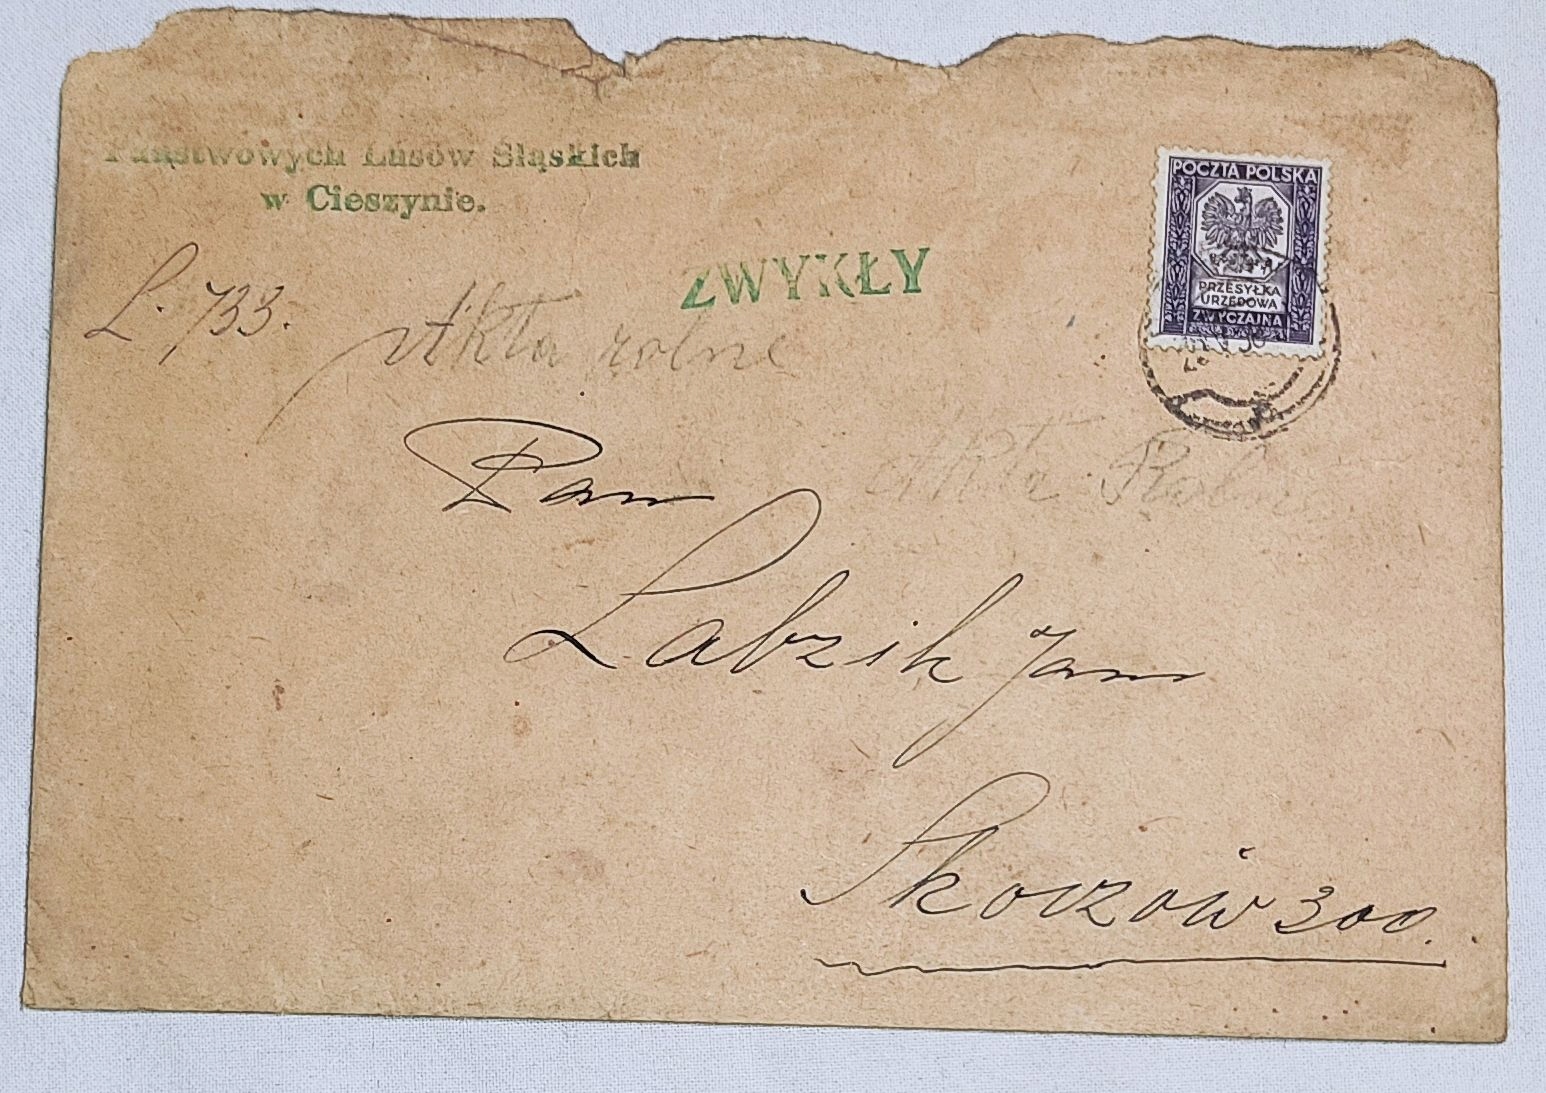 Państwowych Lasów Śląskich
w Cieszynie.
ZWYKŁY
POCZTA POLSKA
PRZESYŁKA
URZĘDOWA
ZWYCZAJNA
L. 733.
Akta rolne
Pan
Akta Rolne
Labzik Jan
Skoczów 300.